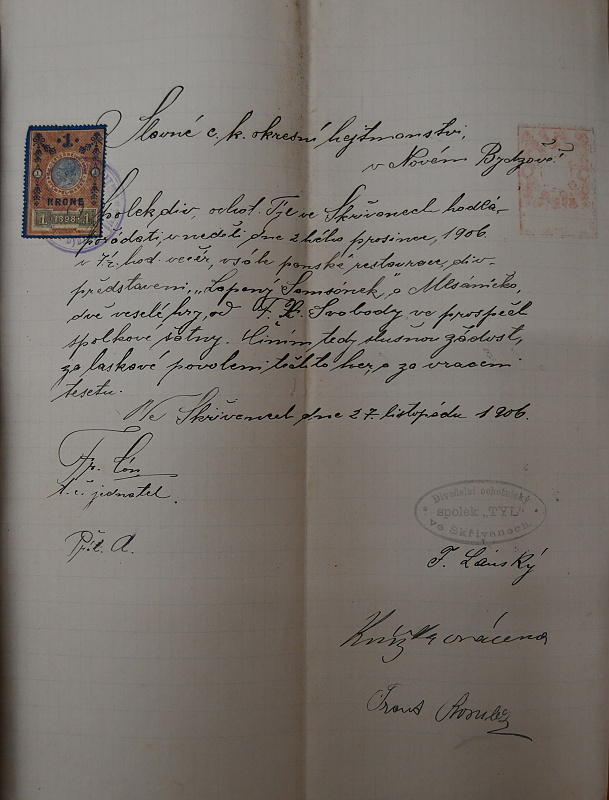 Slavné c. k. okresní hejtmanství,
v Novém Bydžově
1
KRONE
1 1898 1
Spolek div. ochot. Tyl ve Skřivanech hodlá
pořádati, v neděli dne 2 hého prosince, 1906.
v 7½ hod. večer, v sále panské restaurace, div.
představení, „Lapený Samsónek," a
dvě veselé hry, od F. X. Svobody ve prospěch
spolkové šatny. Činím tedy slušnou žádost,
za laskavé povolení těchto her, a za vrácení
textu.
Ve Skřivanech dne 27. listopadu 1906.
Fr.
t. č. jednatel.
Divadelní ochotnický
spolek „TYL"
ve Skřivanech.
Příl. A.
F. Lánský
Knížka vrácena
Frant